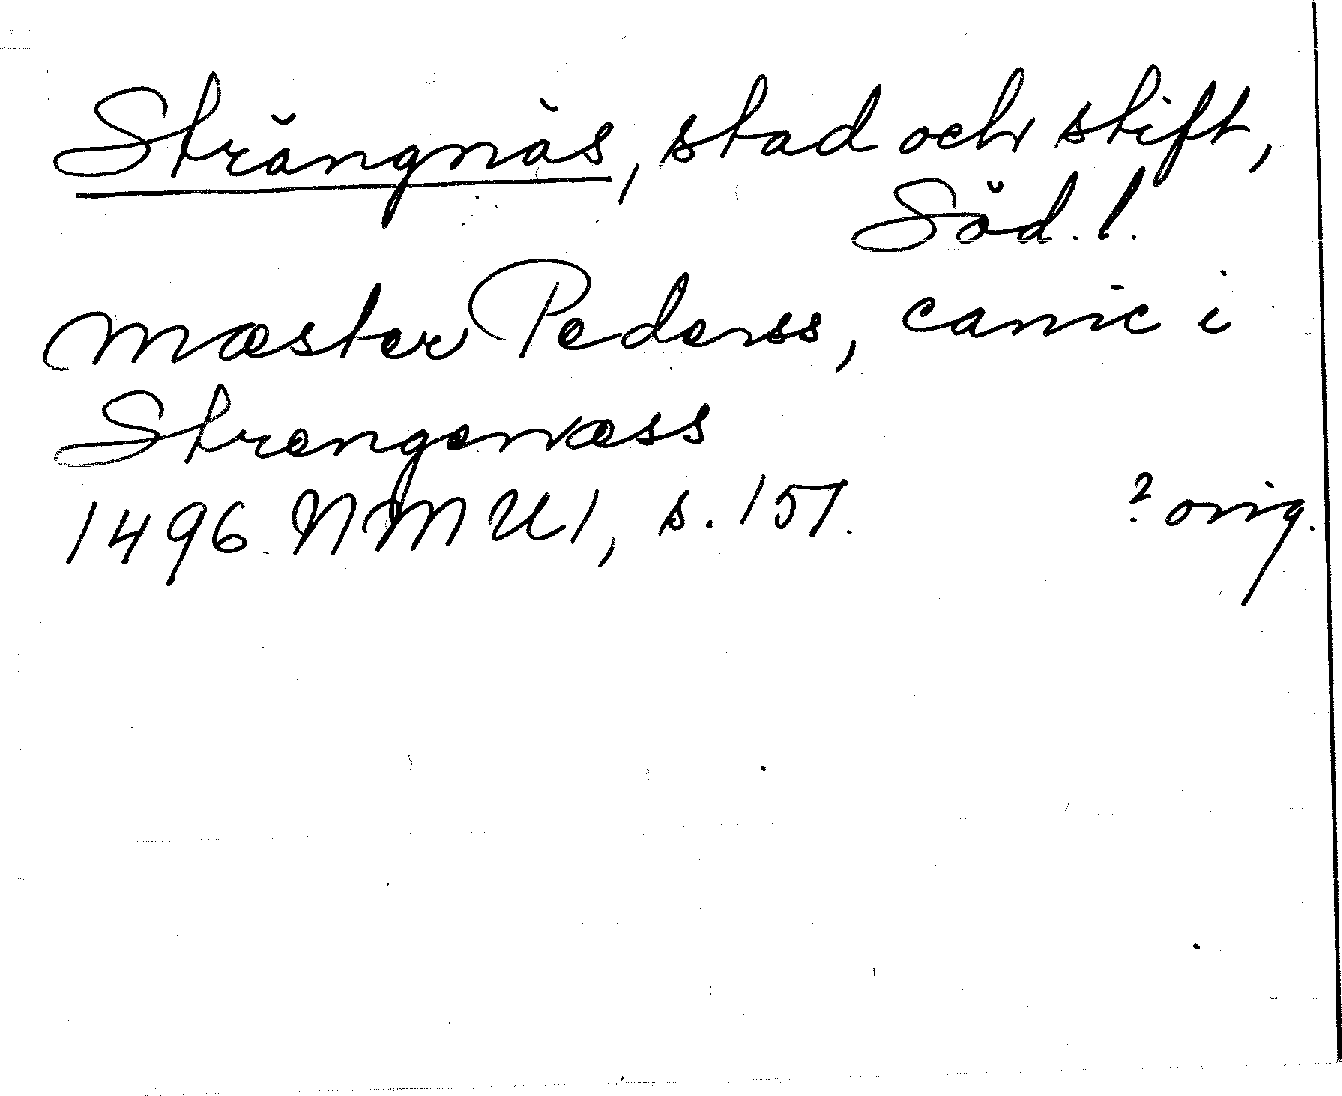 Strängnäs, stad och stift,
Söd. l.
mæster Pederss, canic i
Strengenæss
1496 NMU 1, s. 157. ? orig.